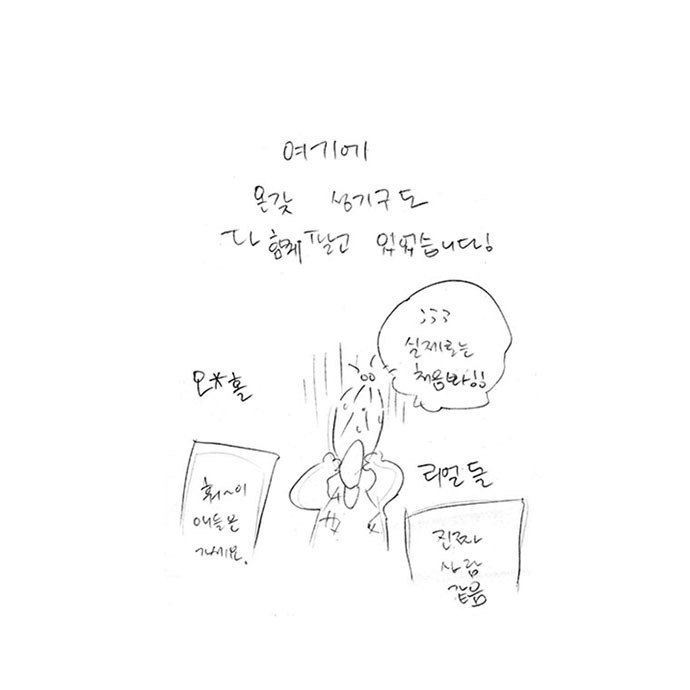 여기에
온갖 성기구도
다 함께 팔고 있었습니다!
;;;
실제로는
처음봐!!
오*홀
리얼돌
휘~이
애들은
가세요.
진짜
사람
같음